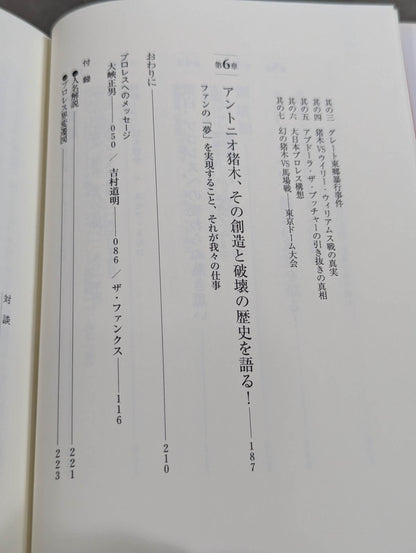 其の三 グレート東郷暴行事件
其の四 猪木VSウイリー・ウィリアムス戦の真実
其の五 アブドーラ・ザ・ブッチャーの引き抜きの真相
其の六 大日本プロレス構想
其の七 幻の猪木VS馬場戦――東京ドーム大会
第6章 アントニオ猪木、その創造と破壊の歴史を語る!――187
ファンの「夢」を実現すること、それが我々の仕事
おわりに――210
プロレスへのメッセージ
大峽正男――050 / 吉村道明――086 / ザ・ファンクス――116
付録
●人名解説――221
●プロレス界変遷図――223
対談